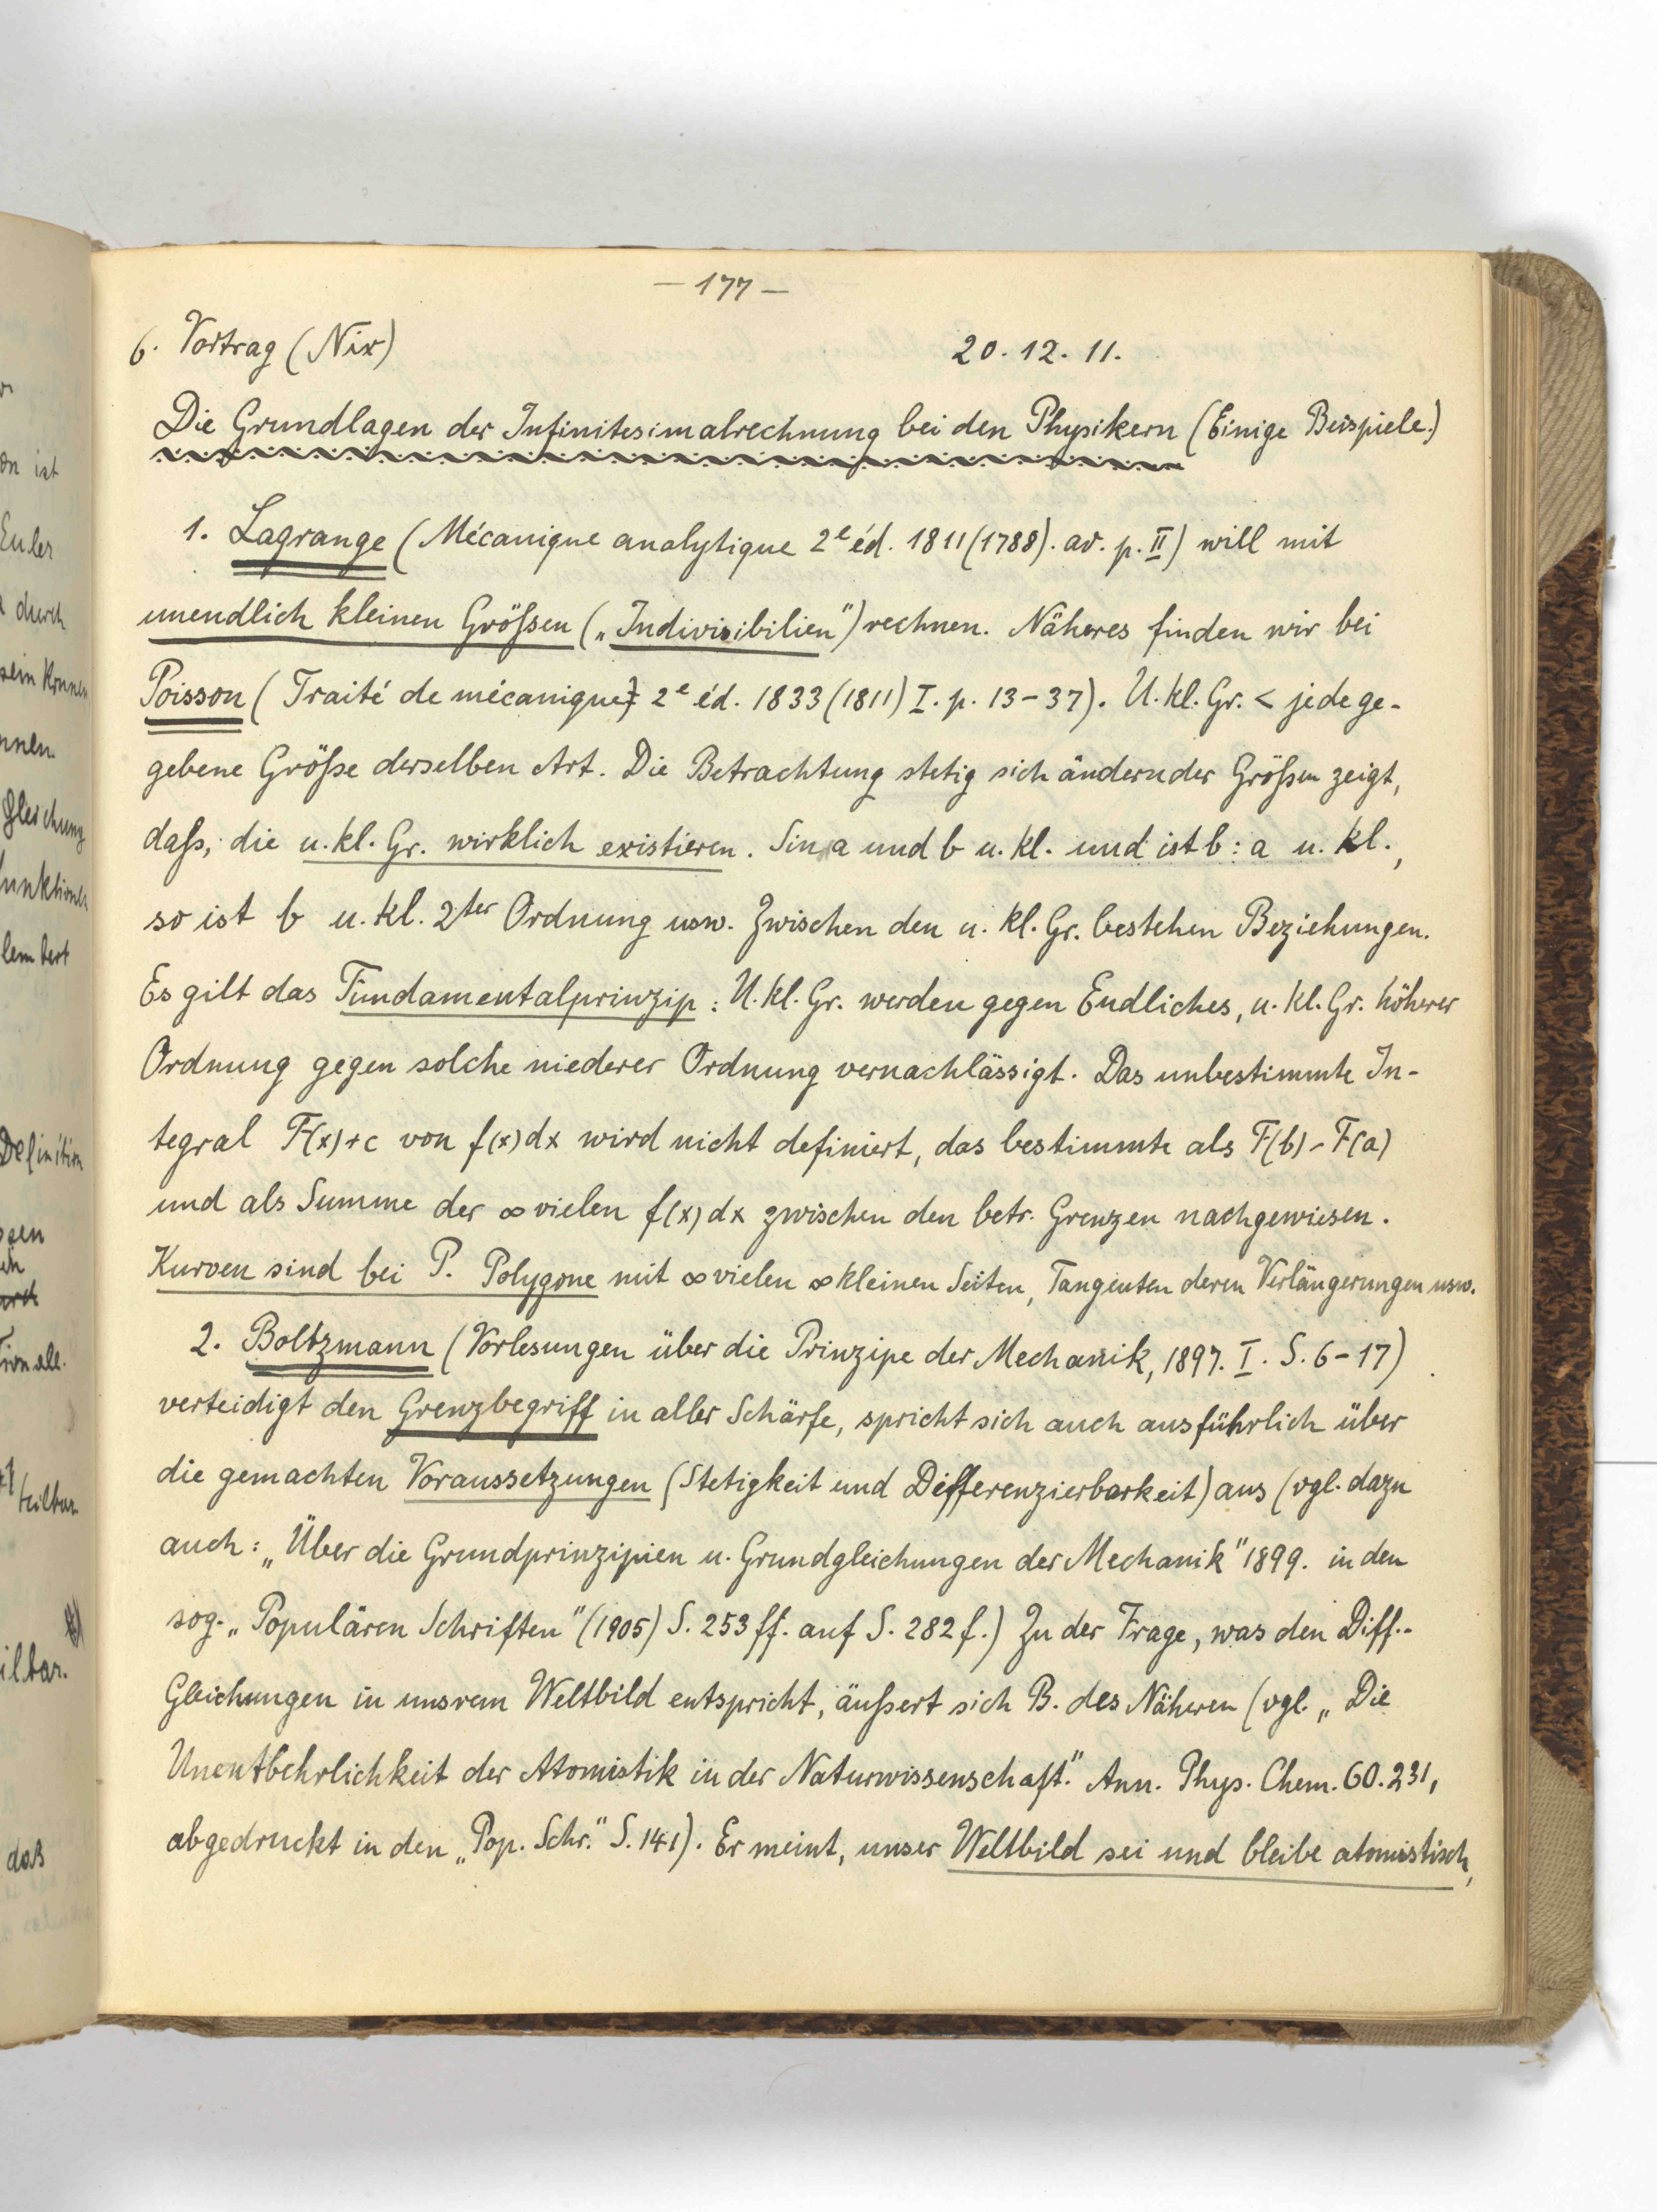 – 177 –
6. Vortrag (Nix) 20. 12. 11.
Die Grundlagen der Infinitesimalrechnung bei den Physikern (Einige Beispiele.)
1. Lagrange (Mécanique analytique 2e éd. 1811 (1788). av. p. II) will mit
unendlich kleinen Größen („Indivisibilien") rechnen. Näheres finden wir bei
Poisson (Traité de mécanique 2e éd. 1833 (1811) I. p. 13–37). U. kl. Gr. < jede ge-
gebene Größe derselben Art. Die Betrachtung stetig sich ändernder Größen zeigt,
daß, die u. kl. Gr. wirklich existieren. Sin a und b u. kl. und ist b : a u. kl.,
so ist b u. kl. 2ter Ordnung usw. Zwischen den u. kl. Gr. bestehen Beziehungen.
Es gilt das Fundamentalprinzip : U. kl. Gr. werden gegen Endliches, u. kl. Gr. höherer
Ordnung gegen solche niederer Ordnung vernachlässigt. Das unbestimmte In-
tegral F(x)+c von f(x)dx wird nicht definiert, das bestimmte als F(b)–F(a)
und als Summe der ∞ vielen f(x)dx zwischen den betr. Grenzen nachgewiesen.
Kurven sind bei P. Polygone mit ∞ vielen ∞ kleinen Seiten, Tangenten deren Verlängerungen usw.
2. Boltzmann (Vorlesungen über die Prinzipe der Mechanik, 1897. I. S. 6–17)
verteidigt den Grenzbegriff in aller Schärfe, spricht sich auch ausführlich über
die gemachten Voraussetzungen (Stetigkeit und Differenzierbarkeit) aus (vgl. dazu
auch : „Über die Grundprinzipien u. Grundgleichungen der Mechanik" 1899. in den
sog. „Populären Schriften" (1905) S. 253 ff. auf S. 282 f.) Zu der Frage, was den Diff.-
Gleichungen in unsrem Weltbild entspricht, äußert sich B. des Näheren (vgl. „Die
Unentbehrlichkeit der Atomistik in der Naturwissenschaft." Ann. Phys. Chem. 60. 231,
abgedruckt in den „Pop. Schr." S. 141). Er meint, unser Weltbild sei und bleibe atomistisch,
on ist
Euler
durch
sein können
nnen.
Gleichung
lembert
Definition
teilbar
ilbar.
daß